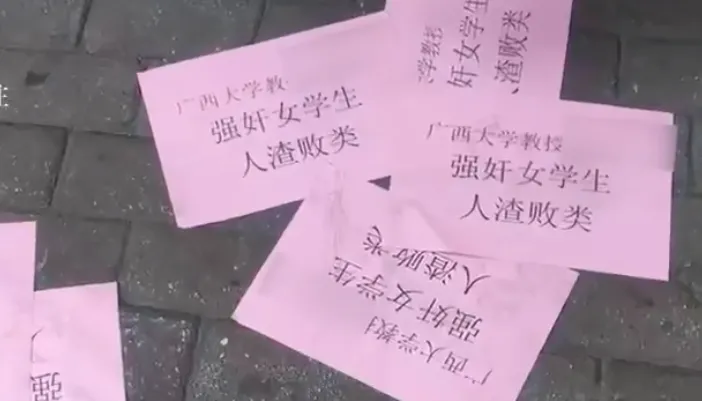 广西大学教
强奸女学生
人渣败类
学教授
奸女学生
渣败类
广西大学教授
强奸女学生
人渣败类
广西大学教
强奸女学生
人渣败类
强